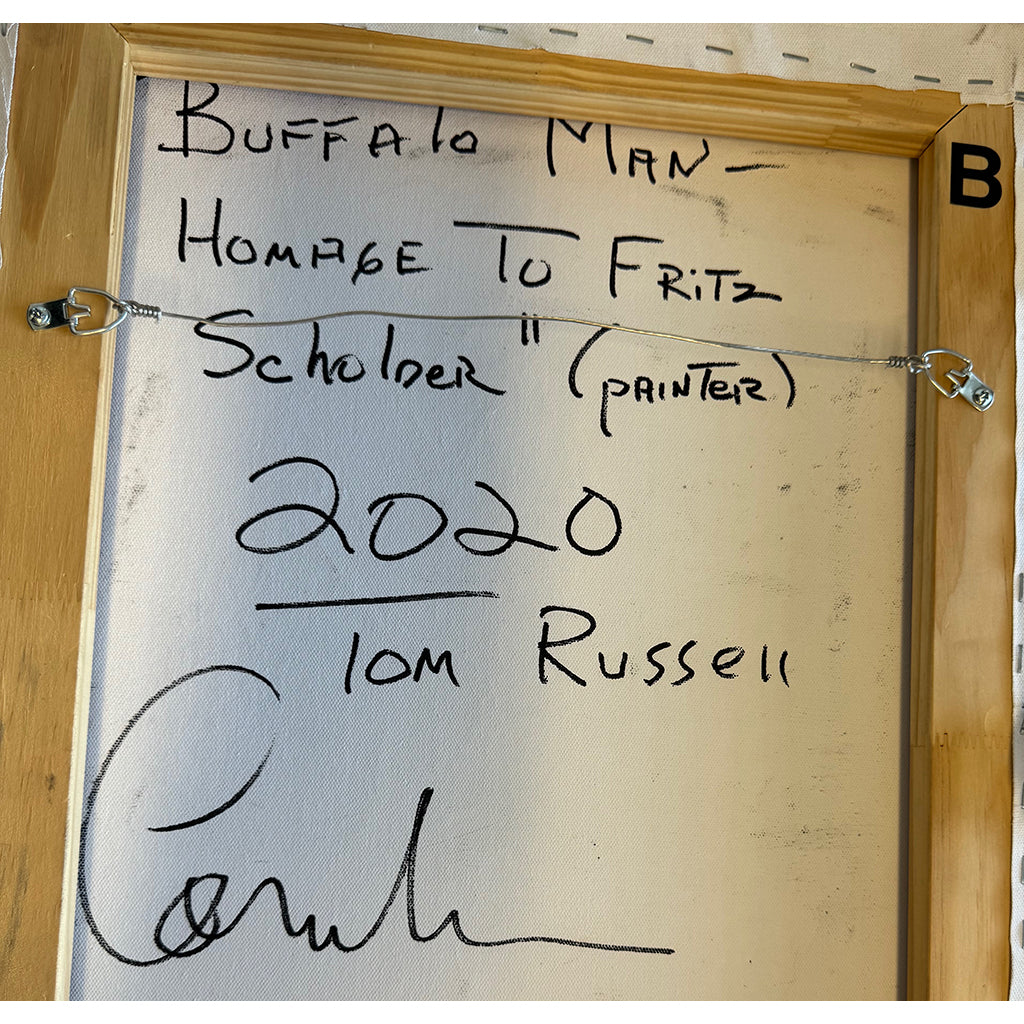 BUFFALO MAN —
HOMAGE TO FRITZ
SCHOLDER" (PAINTER)
2020
TOM RUSSELL
B